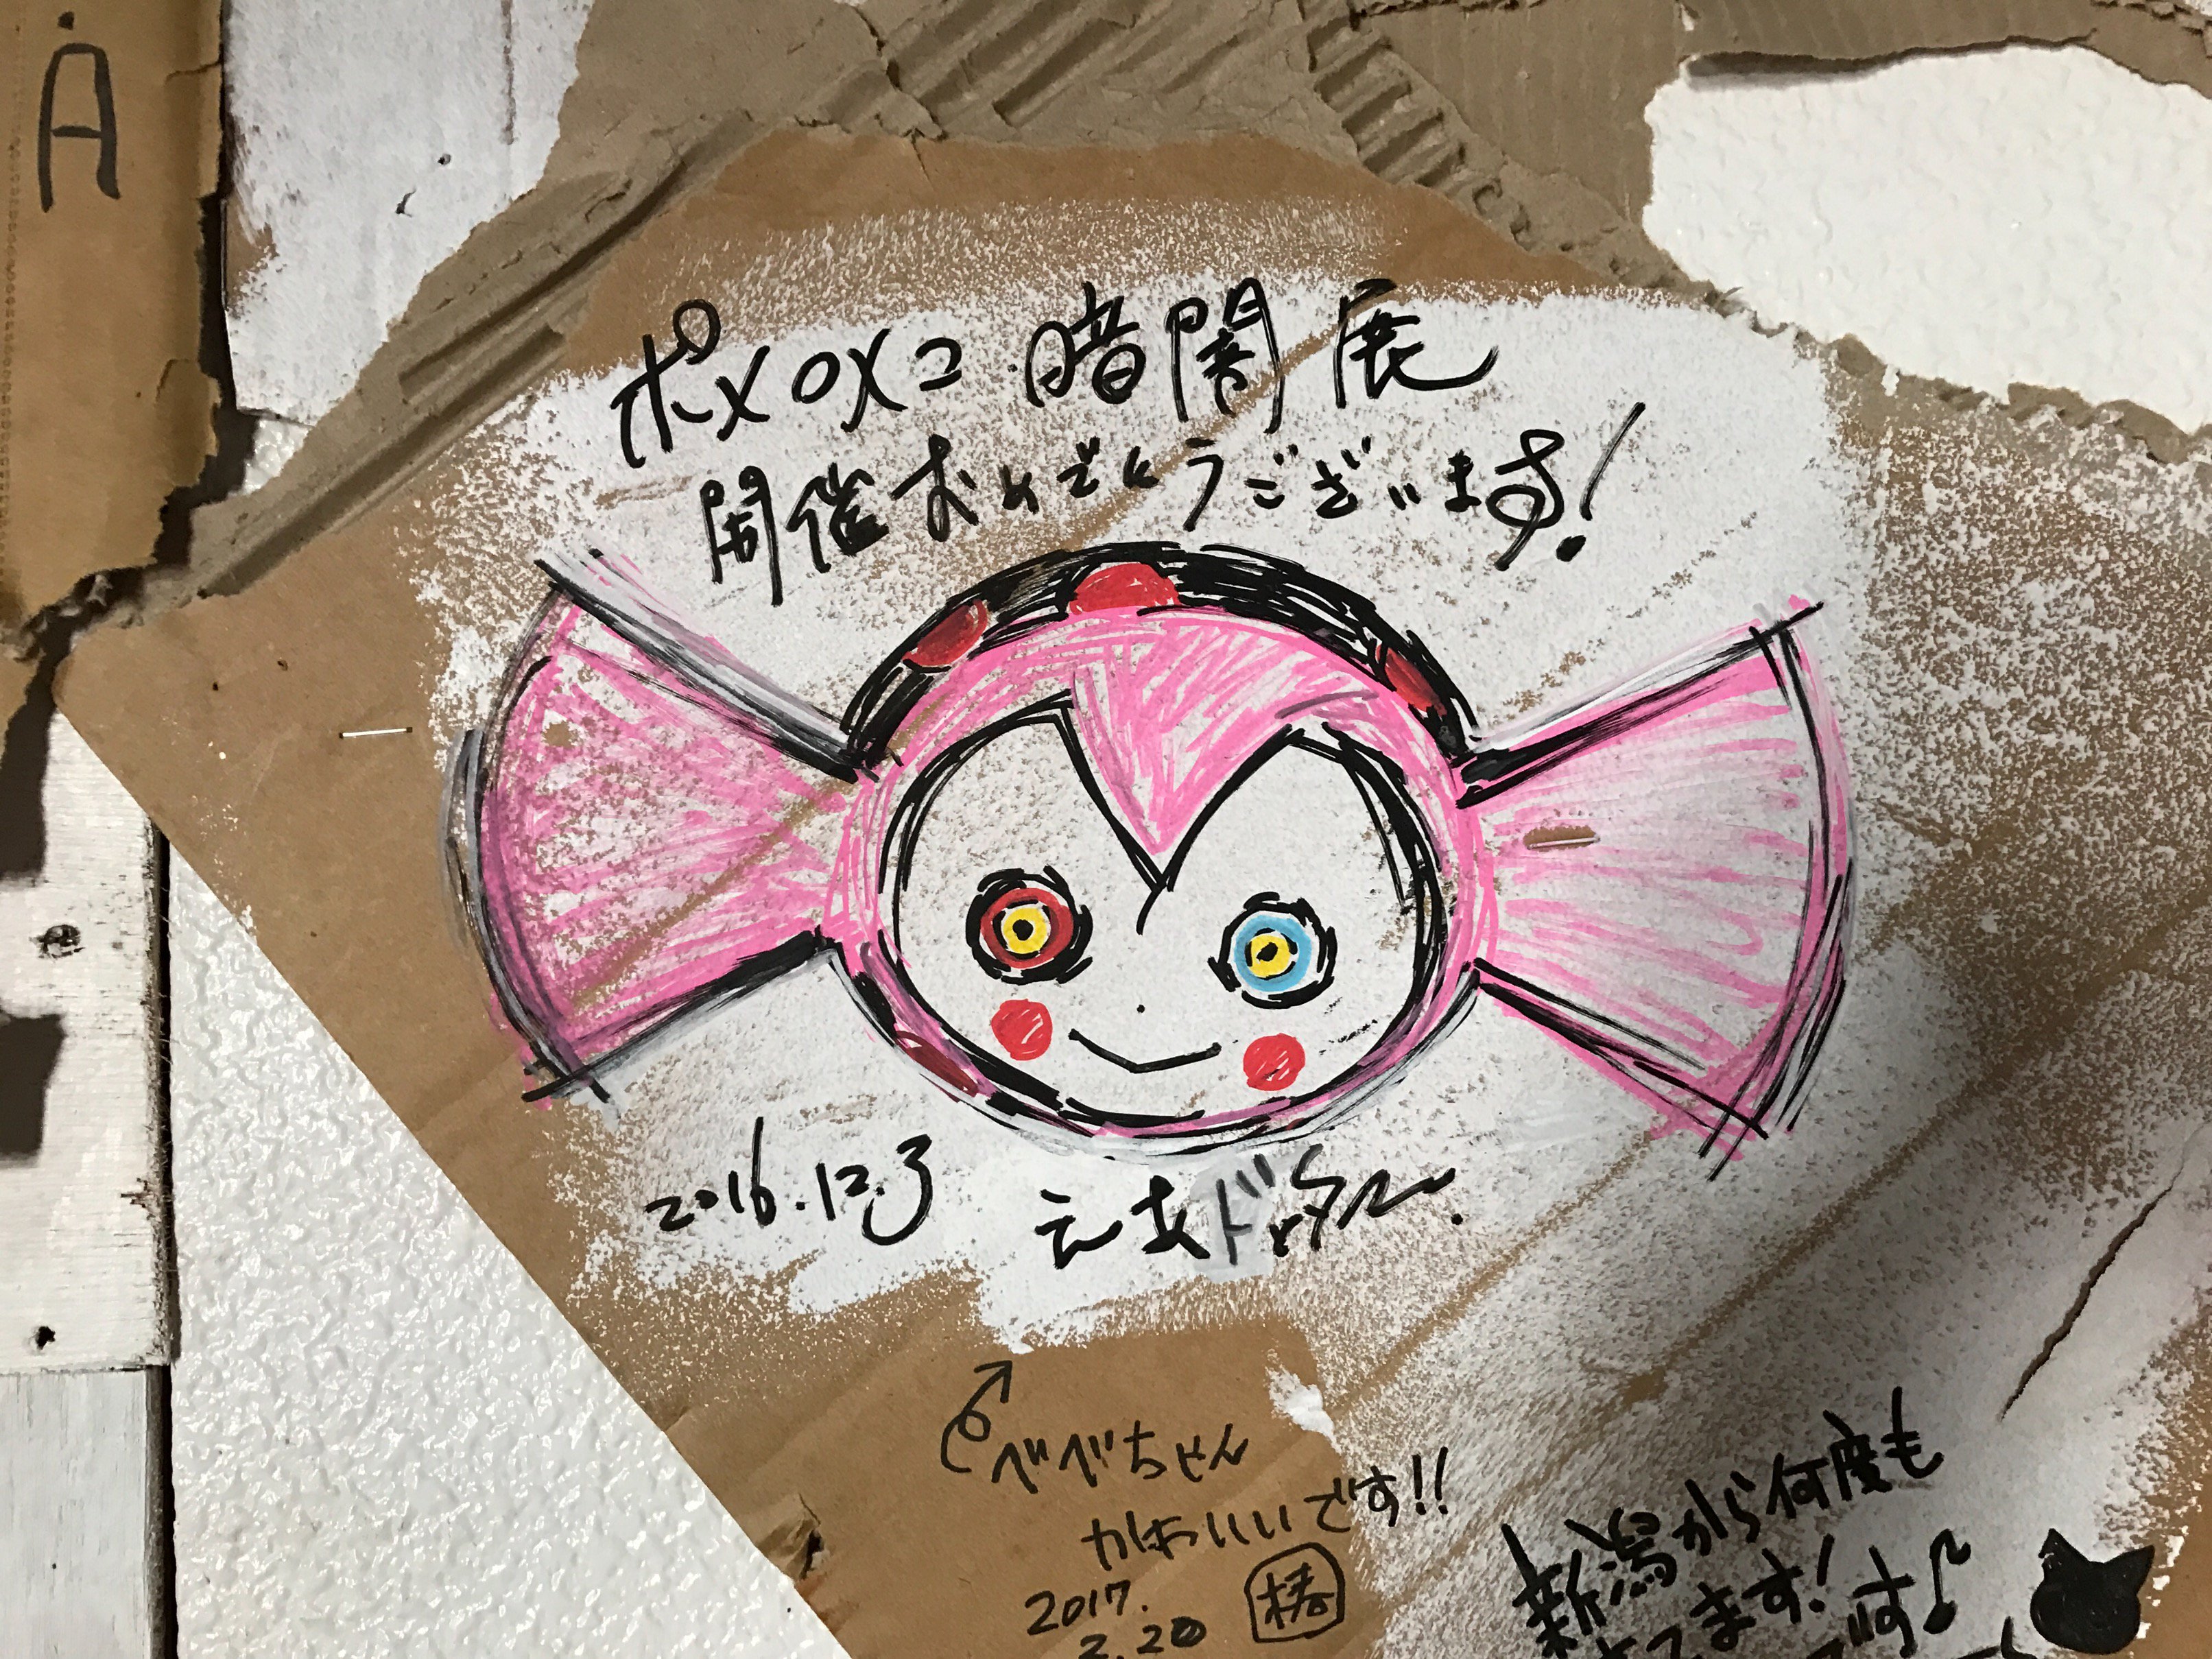 A
ポメロメコ 暗闇 展
開催おめでとうございます!
2016.12.3
べべちゃん
かわいいです!!
2017.
2.20
椿
新潟から何度も
きてます!
です♪